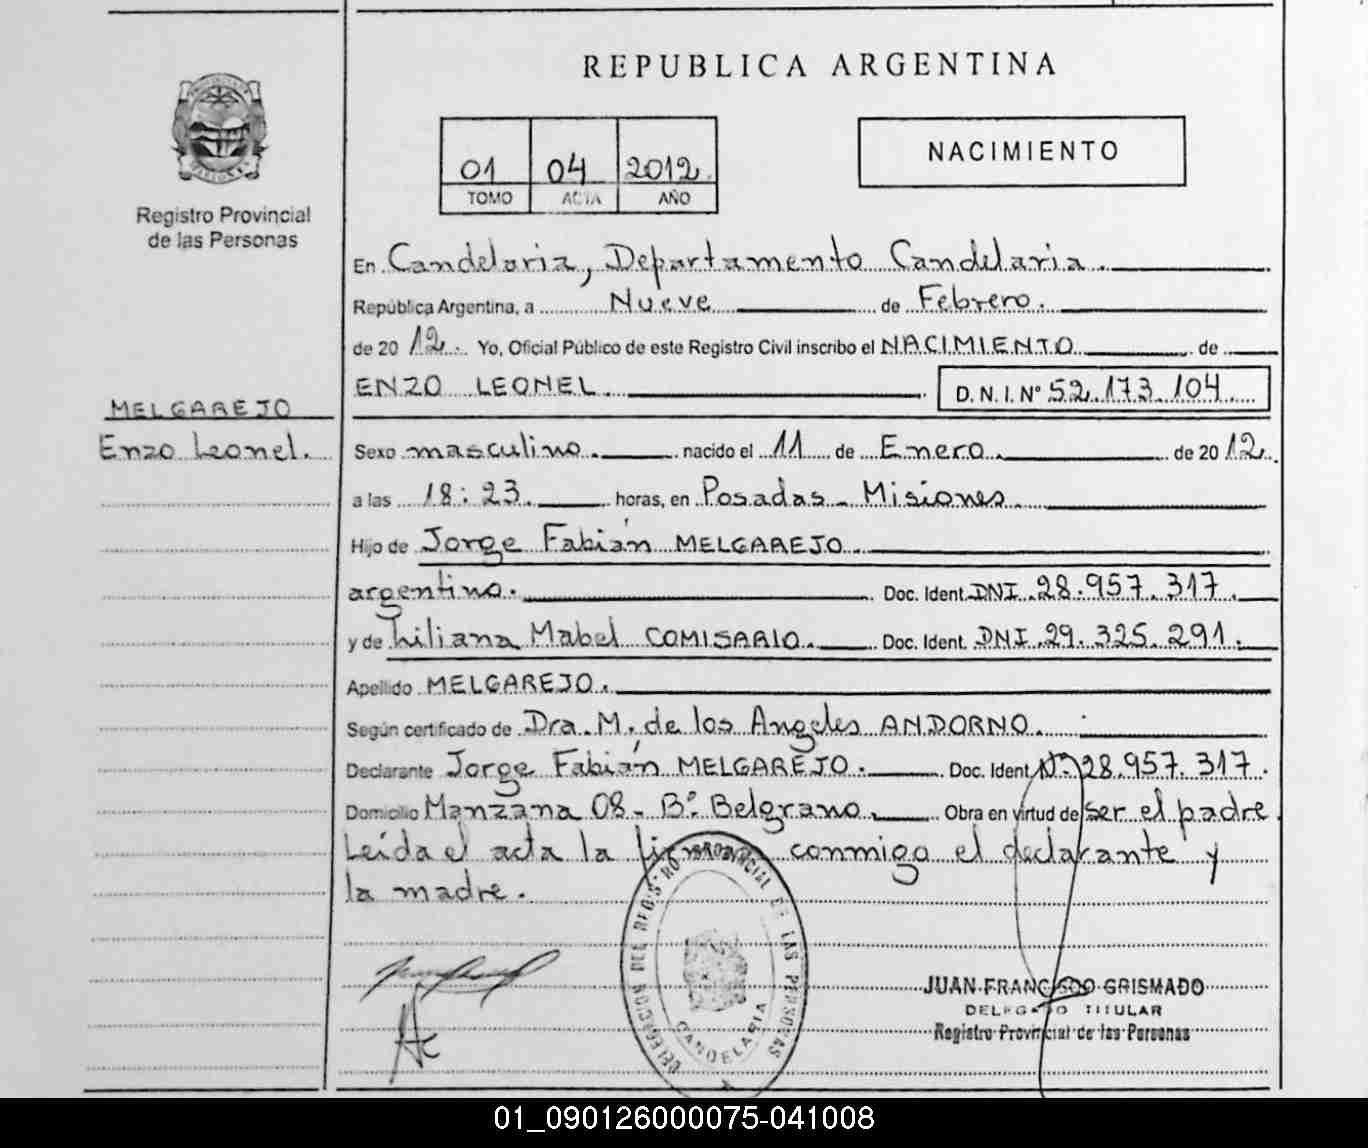 REPUBLICA ARGENTINA
01 04 2012
TOMO ACTA AÑO
NACIMIENTO
Registro Provincial
de las Personas
En Candelaria, Departamento Candelaria.
República Argentina, a Nueve de Febrero.
de 2012. Yo, Oficial Público de este Registro Civil inscribo el NACIMIENTO de
ENZO LEONEL. D. N. I. Nº 52.173.104
MELGAREJO
Enzo Leonel.
Sexo masculino. nacido el 11 de Enero. de 2012.
a las 18:23. horas, en Posadas - Misiones.
Hijo de Jorge Fabián MELGAREJO.
argentino. Doc. Ident. DNI 28.957.317.
y de Liliana Mabel COMISARIO. Doc. Ident. DNI 29.325.291.
Apellido MELGAREJO.
Según certificado de Dra. M. de los Angeles ANDORNO.
Declarante Jorge Fabián MELGAREJO. Doc. Ident. Nº 28.957.317.
Domicilio Manzana 08 - Bº Belgrano. Obra en virtud de ser el padre.
Leída el acta la conmigo el declarante y
la madre.
DELEGACION DEL REGISTRO PROVINCIAL DE LAS PERSONAS
CANDELARIA
JUAN FRANCISCO GRISMADO
DELEGADO TITULAR
Registro Provincial de las Personas
01_090126000075-041008